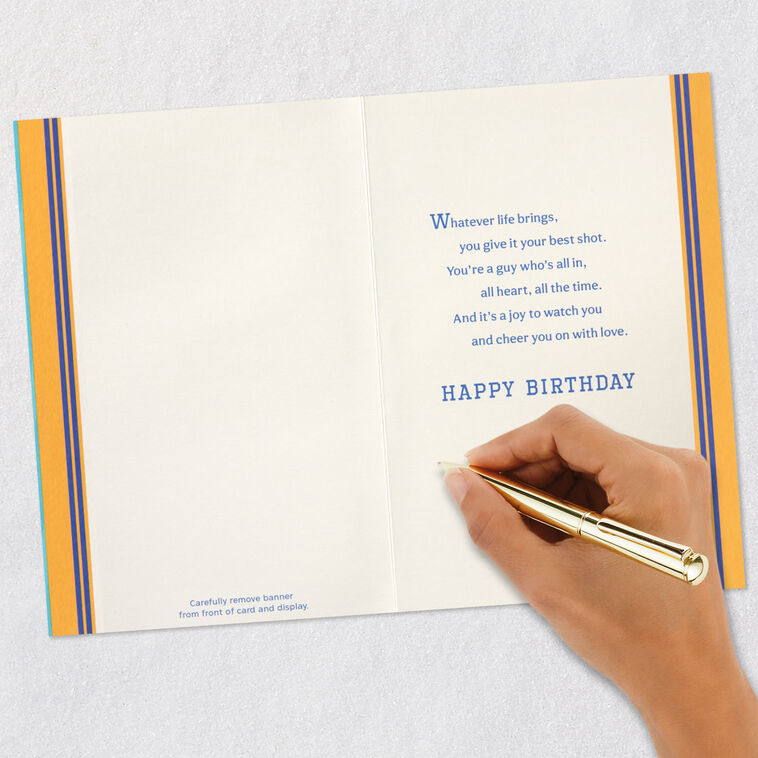 Whatever life brings,
you give it your best shot.
You're a guy who's all in,
all heart, all the time.
And it's a joy to watch you
and cheer you on with love.
HAPPY BIRTHDAY
Carefully remove banner
from front of card and display.